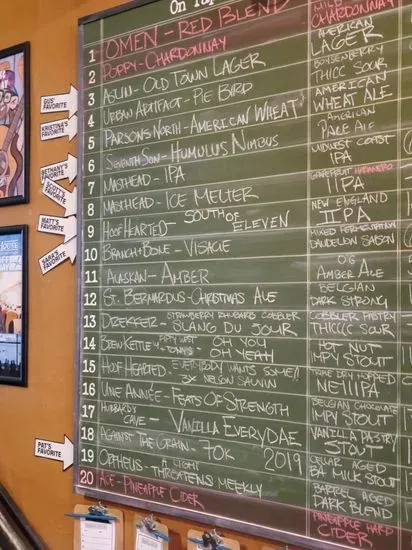 On Tap
1 OMEN - RED BLEND
2 POPPY - CHARDONNAY CHARDONNAY
3 ASLIN - OLD TOWN LAGER AMERICAN LAGER
4 URBAN ARTIFACT - PIE BIRD BOYSENBERRY THICC SOUR
5 PARSONS NORTH - AMERICAN WHEAT AMERICAN WHEAT ALE
6 SEVENTH SON - HUMULUS NIMBUS AMERICAN PALE ALE
7 MASTHEAD - IPA MIDWEST COAST IPA
8 MASTHEAD - ICE MELTER GRAPEFRUIT HABANERO IIPA
9 HOOF HEARTED - SOUTH OF ELEVEN NEW ENGLAND IIPA
10 BRANCH + BONE - VISAGE MIXED FERMENTATION DANDELION SAISON
11 ALASKAN - AMBER OG AMBER ALE
12 ST. BERNARDUS - CHRISTMAS ALE BELGIAN DARK STRONG
13 DREKKER - STRAWBERRY RHUBARB COBBLER SLANG DU JOUR COBBLER PASTRY THICCC SOUR
14 BREW KETTLE - OH YOU OH YEAH HOT NUT IMPY STOUT
15 HOOF HEARTED - EVERYBODY WANTS SOME!! 3X NELSON SAUVIN TRIPLE DRY HOPPED NEIIIPA
16 UNE ANNÉE - FEATS OF STRENGTH BELGIAN CHOCOLATE IMPY STOUT
17 HUBBARD'S CAVE - VANILLA EVERYDAE VANILLA PASTRY STOUT
18 AGAINST THE GRAIN - 70K 2019 CELLAR AGED BA MILK STOUT
19 ORPHEUS - A LIGHT THREATENS MEEKLY BARREL AGED DARK BLEND
20 ACE - PINEAPPLE CIDER PINEAPPLE HARD CIDER
GUS' FAVORITE
KRISTINA'S FAVORITE
BETHANY'S FAVORITE
SCOTT'S FAVORITE
MATT'S FAVORITE
SARA'S FAVORITE
PAT'S FAVORITE